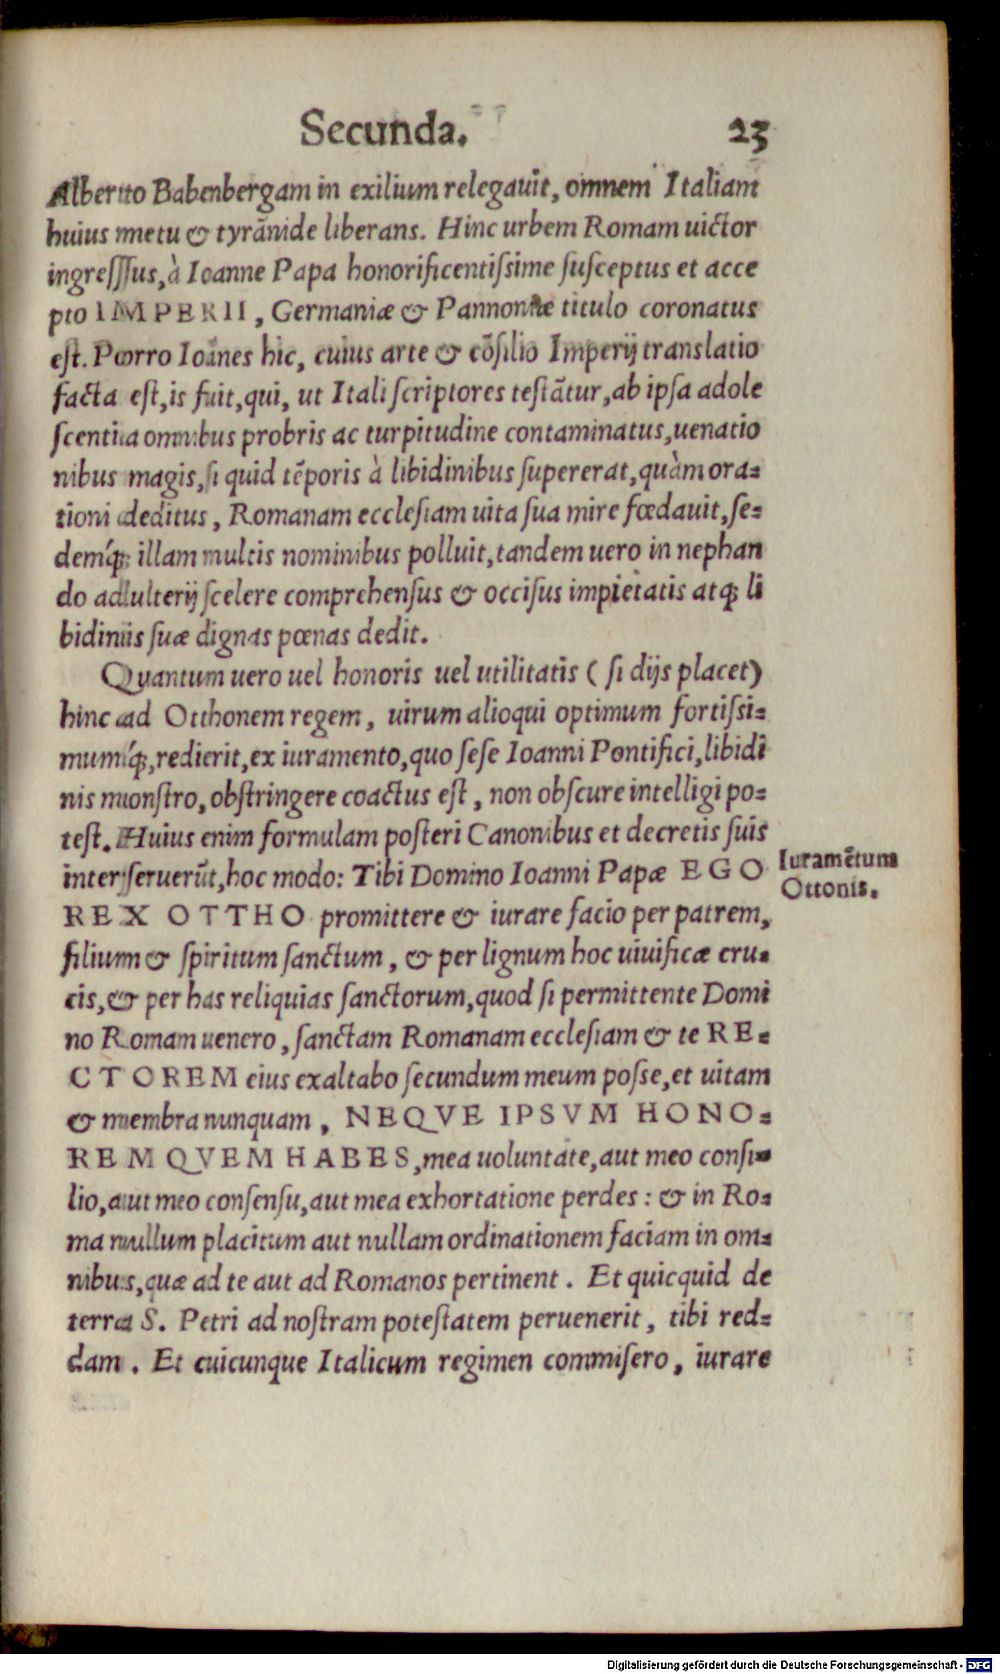 Secunda. 23
Alberto Babenbergam in exilium relegauit, omnem Italiam
huius metu & tyrãnide liberans. Hinc urbem Romam uictor
ingreſſus, à Ioanne Papa honorificentiſsime ſuſceptus et acce
pto IMPERII, Germaniæ & Pannoniæ titulo coronatus
eſt. Porro Ioãnes hic, cuius arte & cõſilio Imperij translatio
facta eſt, is fuit, qui, ut Itali ſcriptores teſtãtur, ab ipſa adole
ſcentia omnibus probris ac turpitudine contaminatus, uenatio
nibus magis, ſi quid tẽporis à libidinibus ſupererat, quàm ora-
tioni deditus, Romanam eccleſiam uita ſua mire fœdauit, ſe-
demq́; illam multis nominibus polluit, tandem uero in nephan
do adulterij ſcelere comprehenſus & occiſus impietatis atq; li
bidinis ſuæ dignas pœnas dedit.
Quantum uero uel honoris uel utilitatis (ſi dijs placet)
hinc ad Otthonem regem, uirum alioqui optimum fortiſsi-
mumq́;, redierit, ex iuramento, quo ſeſe Ioanni Pontifici, libidi
nis monſtro, obſtringere coactus eſt, non obſcure intelligi po-
teſt. Huius enim formulam poſteri Canonibus et decretis ſuis
interſeruerũt, hoc modo: Tibi Domino Ioanni Papæ EGO
REX OTTHO promittere & iurare facio per patrem,
filium & ſpiritum ſanctum, & per lignum hoc uiuificæ cru-
cis, & per has reliquias ſanctorum, quod ſi permittente Domi
no Romam uenero, ſanctam Romanam eccleſiam & te RE-
CTOREM eius exaltabo ſecundum meum poſſe, et uitam
& membra nunquam, NEQVE IPSVM HONO-
REM QVEM HABES, mea uoluntate, aut meo conſi-
lio, aut meo conſenſu, aut mea exhortatione perdes: & in Ro-
ma nullum placitum aut nullam ordinationem faciam in om-
nibus, quæ ad te aut ad Romanos pertinent. Et quicquid de
terra S. Petri ad noſtram poteſtatem peruenerit, tibi red-
dam. Et cuicunque Italicum regimen commiſero, iurare
Iuramẽtum
Ottonis.
Digitalisierung gefördert durch die Deutsche Forschungsgemeinschaft - DFG